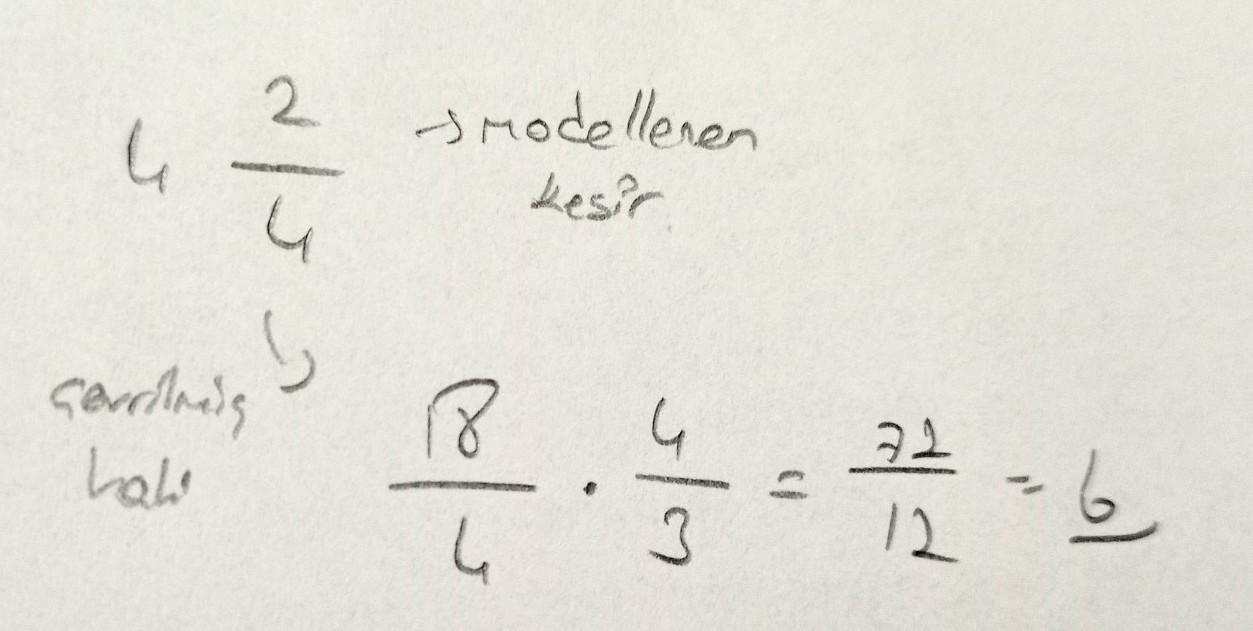 4 2/4 → modellenen
kesir
çevrilmiş ↳
hali
18/4 . 4/3 = 72/12 = 6